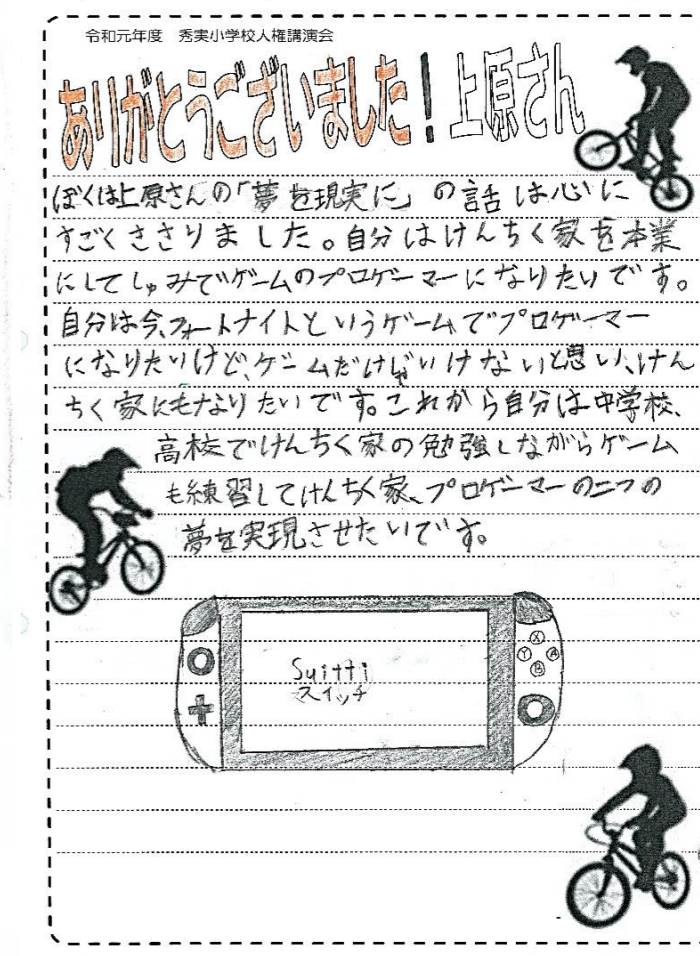 令和元年度　秀実小学校人権講演会
ありがとうございました！上原さん
ぼくは上原さんの「夢を現実に」の話は心に
すごくささりました。自分はけんちく家を本業
にしてしゅみでゲームのプロゲーマーになりたいです。
自分は今、フォートナイトというゲームでプロゲーマー
になりたいけど、ゲームだけじゃいけないと思い、けん
ちく家にもなりたいです。これから自分は中学校、
高校でけんちく家の勉強しながらゲーム
も練習してけんちく家、プロゲーマーの二つの
夢を実現させたいです。
X
Y A
B
Suitti
スイッチ